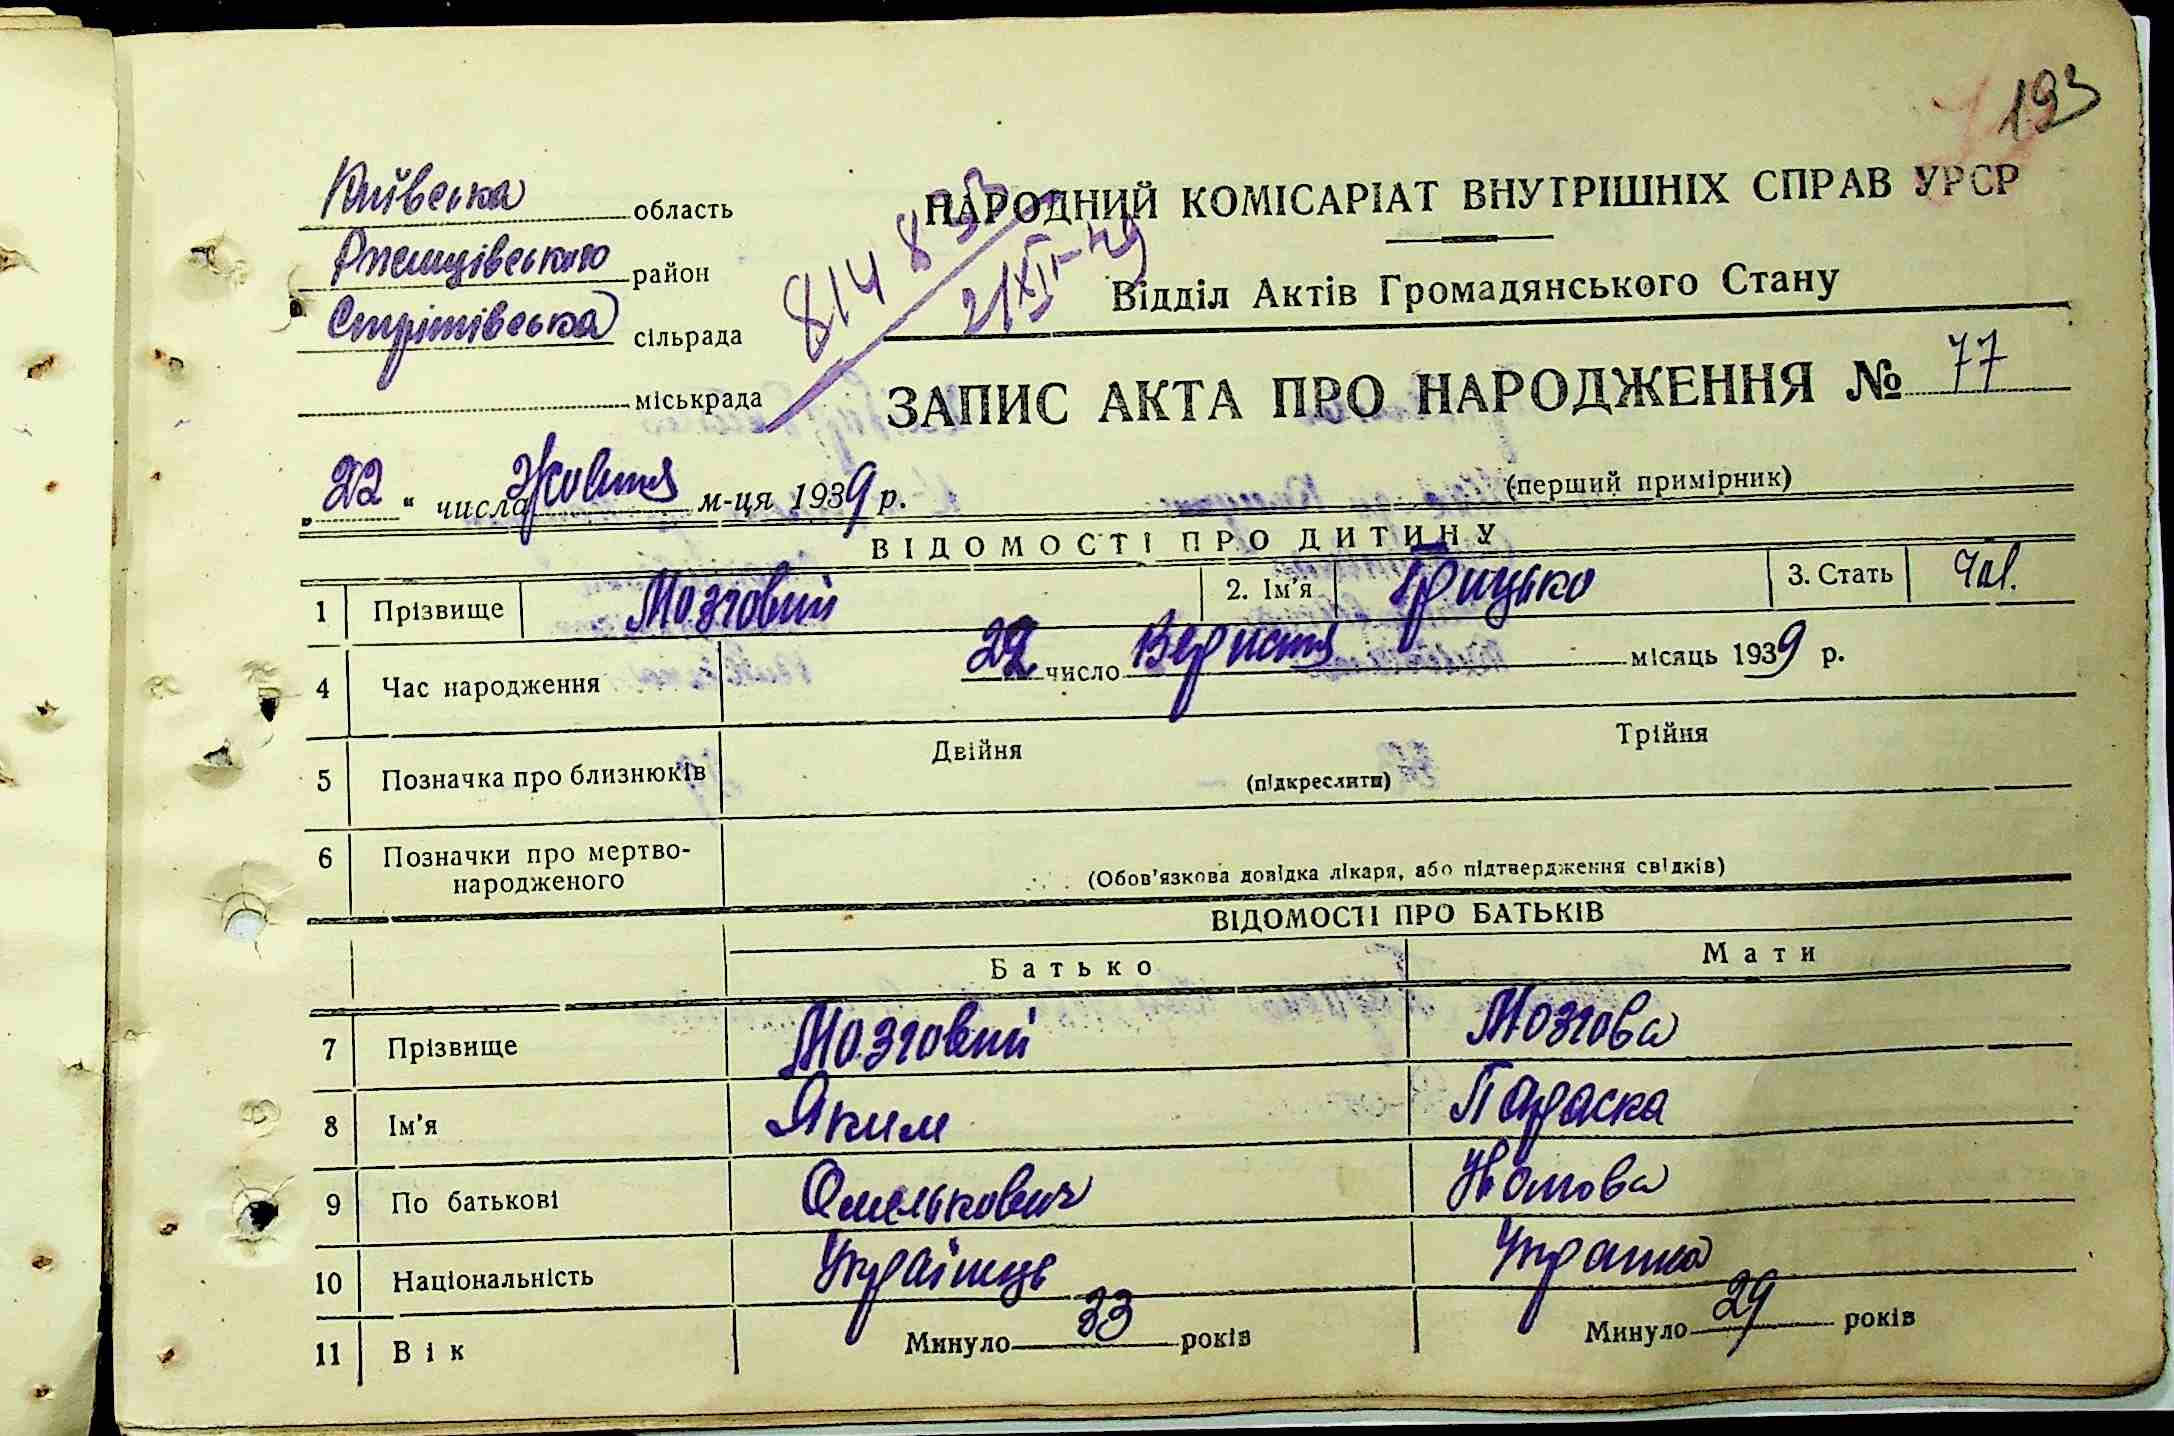 193
Київська область
НАРОДНИЙ КОМІСАРІАТ ВНУТРІШНІХ СПРАВ УРСР
Ржищівського район
Відділ Актів Громадянського Стану
Стрітівська сільрада
міськрада
21/XI-49
ЗАПИС АКТА ПРО НАРОДЖЕННЯ № 77
„22" числа Жовтня м-ця 1939 р.
(перший примірник)
ВІДОМОСТІ ПРО ДИТИНУ
1 Прізвище Мозговий 2. Ім'я Грицько 3. Стать Чол.
4 Час народження число Вересня місяць 1939 р.
5 Позначка про близнюків Двійня (підкреслити) Трійня
6 Позначки про мертво-
народженого (Обов'язкова довідка лікаря, або підтвердження свідків)
ВІДОМОСТІ ПРО БАТЬКІВ
Батько Мати
7 Прізвище Мозговий Мозгова
8 Ім'я Яким Параска
9 По батькові Омелькович
10 Національність Українець Українка
11 Вік Минуло 33 років Минуло 29 років